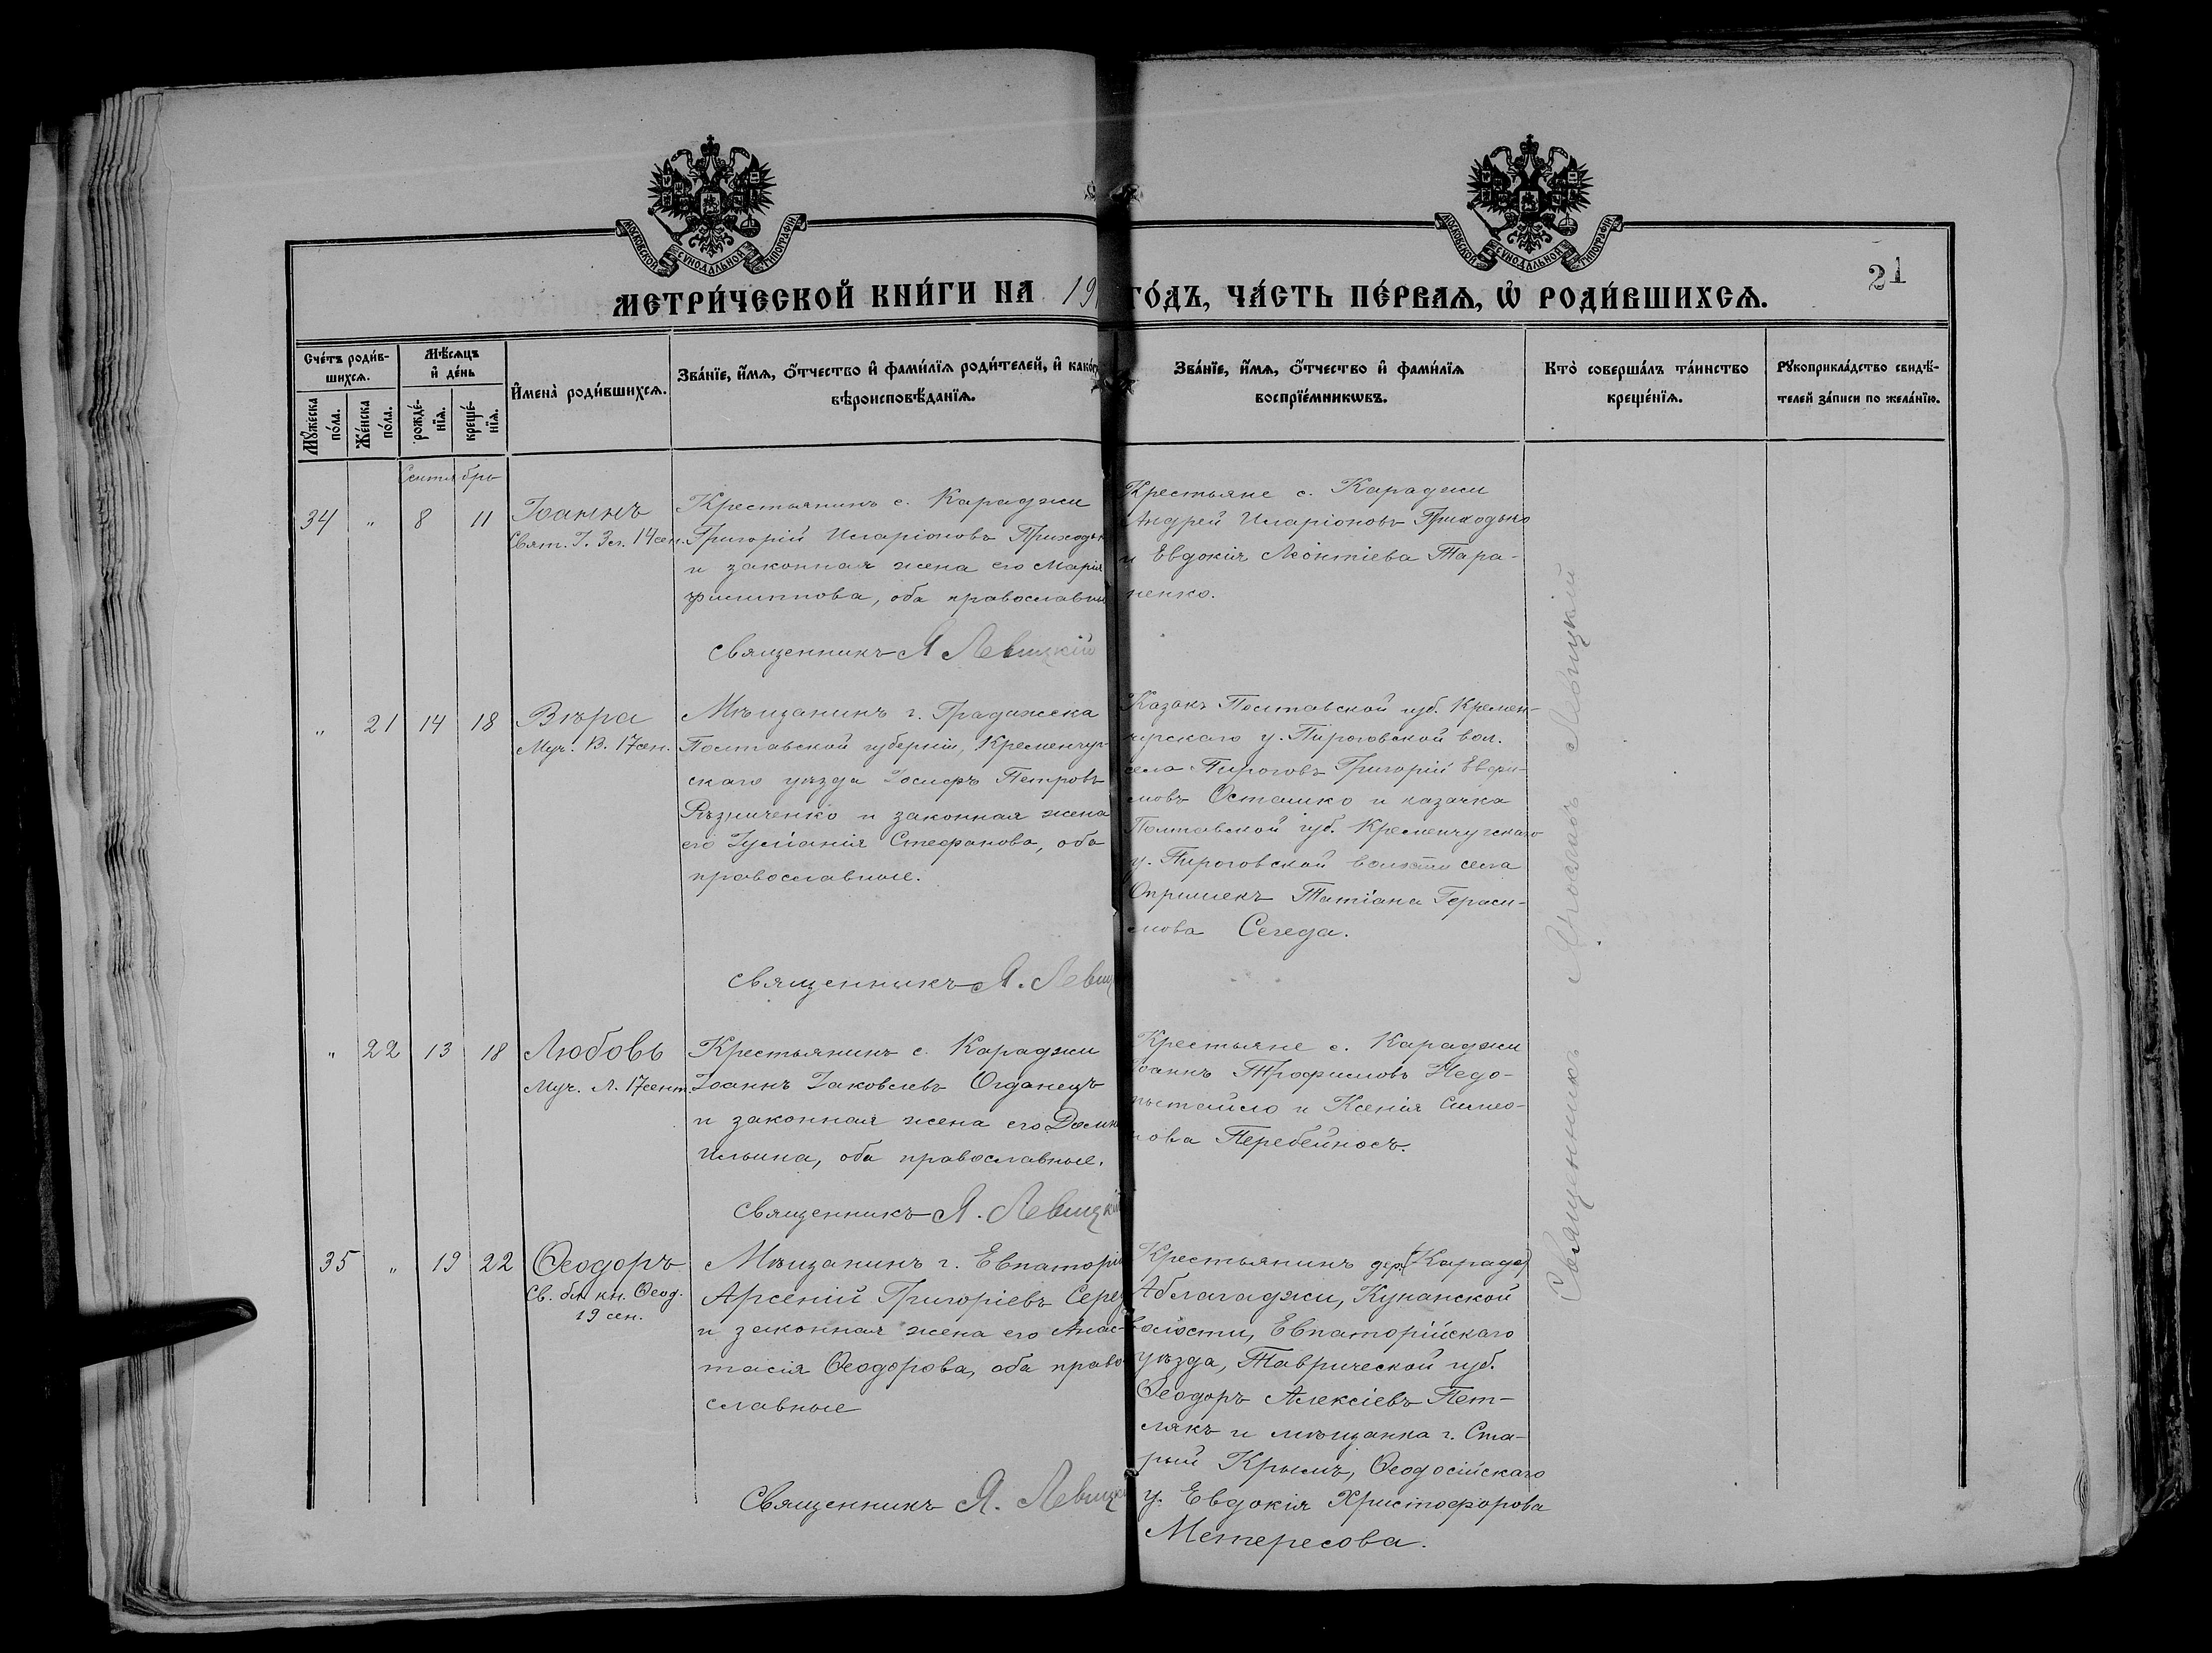 МОСКОВСКОЙ СѴНОДАЛЬНОЙ ТИПОГРАФІИ
МОСКОВСКОЙ СѴНОДАЛЬНОЙ ТИПОГРАФІИ
21
МЕТРИ́ЧЕСКОЙ КНИ́ГИ НА 19
ГО́ДЪ, ЧА́СТЬ ПЕ́РВАѦ, Ѡ҆ РОДИ́ВШИХСѦ.
Сче́тъ роди́в-
шихсѧ.
Мѣ́сѧцъ
и҆ де́нь
Мꙋ́жеска по́ла.
Же́нска по́ла.
рожде́-
нїѧ.
креще́-
нїѧ.
И҆мена̀ роди́вшихсѧ.
Зва́нїе, и҆́мѧ, ѻ҆́тчество и҆ фами́лїѧ роди́телей, и҆ како́гѡ
вѣроисповѣ́данїѧ.
Зва́нїе, и҆́мѧ, ѻ҆́тчество и҆ фами́лїѧ
воспрїе́мникѡвъ.
Кто̀ соверша́лъ та́инство
креще́нїѧ.
Рꙋкоприкла́дство свидѣ́-
телей за́писи по жела́нїю.
Сентябрь
34 " 8 11 Іоаннъ
Свят. І. Зл. 14 сен.
Крестьянинъ с. Караджи
Григорій Иларіоновъ Приходьк
и законная жена его Марія
Филиппова, оба православные
Священникъ Я Левицкій
Крестьяне с. Караджи
Андрей Иларіоновъ Приходько
и Евдокія Леонтіева Тара-
ненко.
" 21 14 18 Вѣра
Муч. В. 17 сен.
Мѣщанинъ г. Градижска
Полтавской губерніи, Кременчуг-
скаго уѣзда Іосифъ Петровъ
Рѣзниченко и законная жена
его Іуліанія Стефанова, оба
православные.
Священникъ Я. Левиц
Казакъ Полтавской губ. Кремен-
чугскаго у. Пироговской вол.
села Пироговъ Григорій Евфи-
мовъ Осташко и казачка
Полтавской губ. Кременчугскаго
у. Пироговской волости села
Опришекъ Татіана Гераси-
мова Сегеда.
" 22 13 18 Любовь
Муч. Л. 17 сент.
Крестьянинъ с. Караджи
Іоаннъ Іаковлевъ Огданецъ
и законная жена его Домн
Ильина, оба православные.
Священникъ Я. Левицкій
Крестьяне с. Караджи
Іоаннъ Трофимовъ Недо-
и Ксенія Симео-
нова Перебейносъ.
35 " 19 22 Ѳеодоръ
Св. бл. кн. Ѳеод.
19 сен.
Мѣщанинъ г. Евпаторіи
Арсеній Григоріевъ
и законная жена его Анас-
тасія Ѳеодорова, оба право-
славные
Священникъ Я. Левицкі
Крестьянинъ дер. (Карадж)
Аблагаджи, Кунанской
волости, Евпаторійскаго
уѣзда, Таврической губ.
Ѳеодоръ Алексіевъ Пет-
лякъ и мѣщанка г. Ста-
рый Крымъ, Ѳеодосійскаго
у. Евдокія Христофорова
Метересова.
Священникъ Левицкій